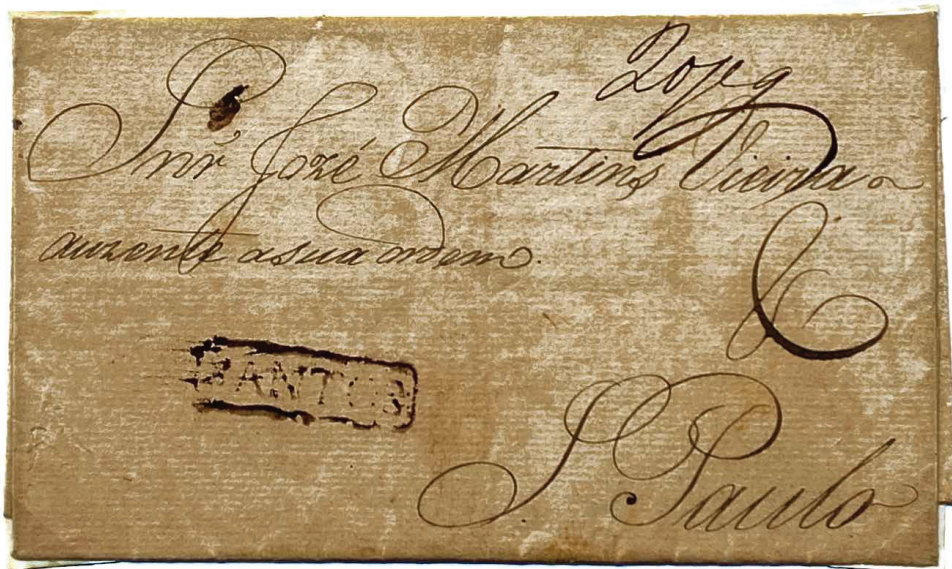 20pg
Snr José Martins Vieira
auzente a sua ordem.
SANTOS
S Paulo